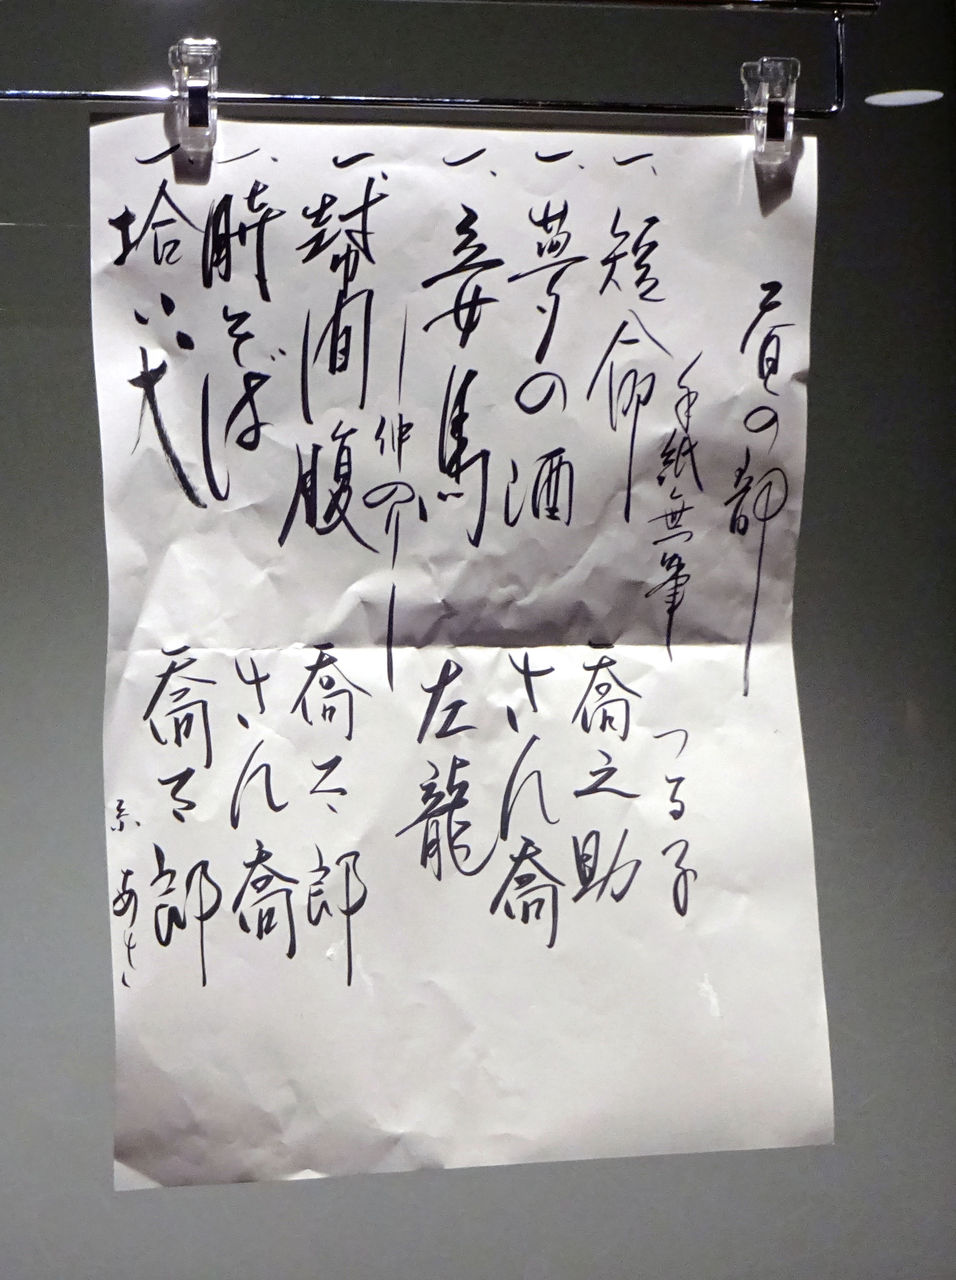 昼の部
手紙無筆 つる子
一、短命 喬之助
一、夢の酒 さん喬
一、妾馬 左龍
―仲入―
一、幇間腹 喬太郎
一、時そば さん喬
一、拾八大 喬太郎
あさ